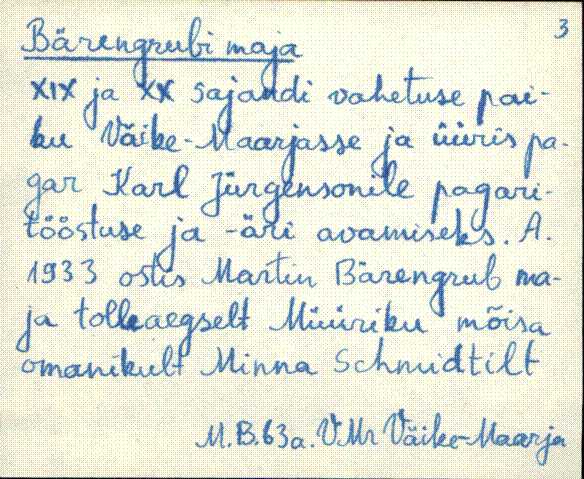 3
Bärengrubi maja
XIX ja XX sajandi vahetuse pai-
ku Väike-Maarjasse ja üüris pa-
gar Karl Jürgensonile pagari-
tööstuse ja -äri avamiseks. A.
1933 ostis Martin Bärengrub ma-
ja tolleaegselt Müüriku mõisa
omanikult Minna Schmidtilt
M.B. 63a. VMr Väike-Maarja